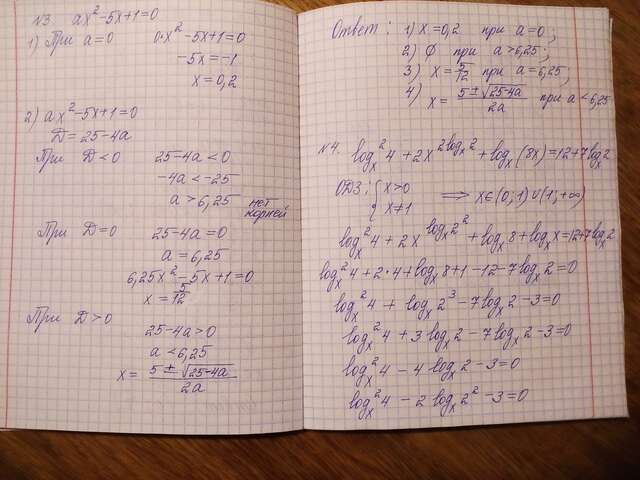 №3. ax²-5x+1=0
1) При a=0 0·x²-5x+1=0
-5x=-1
x=0,2
2) ax²-5x+1=0
D=25-4a
При D<0 25-4a<0
-4a<-25
a>6,25 нет корней
При D=0 25-4a=0
a=6,25
6,25x²-5x+1=0
x=5/12
При D>0
25-4a>0
a<6,25
x=(5±√(25-4a))/(2a)
Ответ: 1) x=0,2 при a=0;
2) ∅ при a>6,25;
3) x=5/12 при a=6,25;
4) x=(5±√(25-4a))/(2a) при a<6,25
№4. logₓ²4+2x^(2logₓ2)+logₓ(8x)=12+7logₓ2
ОДЗ: {x>0 x≠1 ⟹ x∈(0;1)∪(1;+∞)
logₓ²4+2x^(logₓ2²)+logₓ8+logₓx=12+7logₓ2
logₓ²4+2·4+logₓ8+1-12-7logₓ2=0
logₓ²4+logₓ2³-7logₓ2-3=0
logₓ²4+3logₓ2-7logₓ2-3=0
logₓ²4-4logₓ2-3=0
logₓ²4-2logₓ2²-3=0